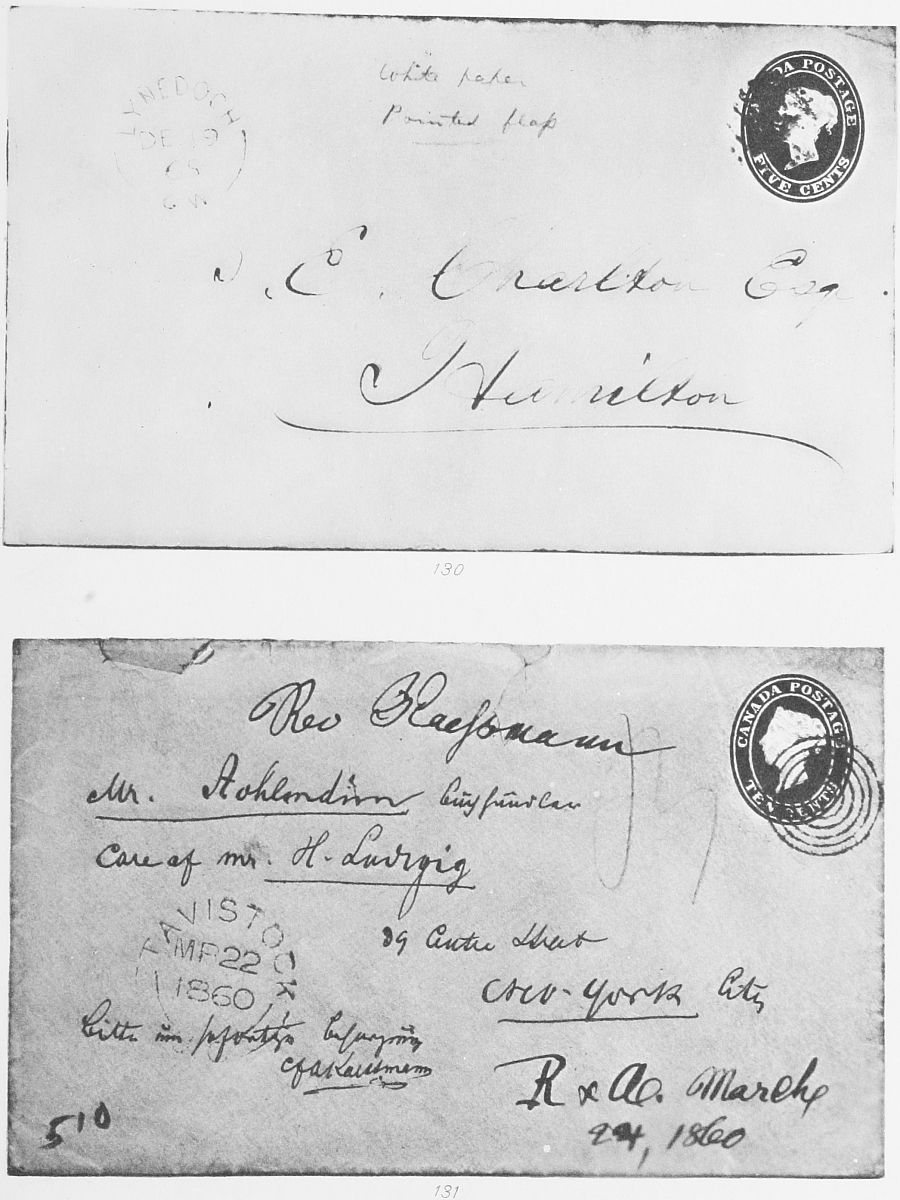 White paper
Pointed flap
CANADA POSTAGE
FIVE CENTS
LYNEDOCH
DE 19
65
C W
E. Charlton Esq
Hamilton
130
CANADA POSTAGE
TEN CENTS
Rev Klaessmann
Mr.
Care of mr. H. Ludwig
89 Centre Street
New-York City
TAVISTOCK
MR 22
1860
Bitte um
R & A. March
24, 1860
5 10
131